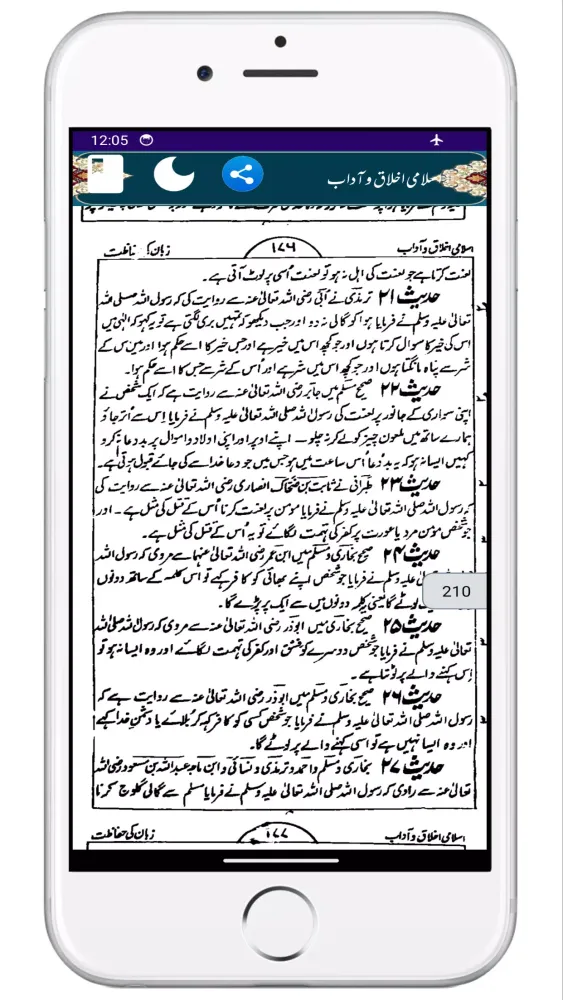 12:05
اسلامی اخلاق و آداب
اسلامی اخلاق و آداب ۱۷۶ زبان کی حفاظت
لعنت کرتا ہے جو لعنت کی اہل نہ ہو تو لعنت اُسی پر لوٹ آتی ہے۔
حدیث ۲۱ ترمذی نے اُبی رضی اللہ تعالیٰ عنہ سے روایت کی کہ رسول اللہ صلی اللہ
تعالیٰ علیہ وسلم نے فرمایا ہوا کو گالی نہ دو اور جب دیکھو کہ تمہیں بری لگتی ہے تو یہ کہو کہ الٰہی میں
اس کی خیر کا سوال کرتا ہوں اور جو کچھ اس میں خیر ہے اور جس خیر کا اسے حکم ہوا اور میں اس کے
شر سے پناہ مانگتا ہوں اور جو کچھ اس میں شر ہے اور اُس کے شر سے جس کا اسے حکم ہوا۔
حدیث ۲۲ صحیح مسلم میں جابر رضی اللہ تعالیٰ عنہ سے روایت ہے کہ ایک شخص نے
اپنی سواری کے جانور پر لعنت کی رسول اللہ صلی اللہ تعالیٰ علیہ وسلم نے فرمایا اس سے اُتر جاؤ
ہمارے ساتھ میں ملعون چیز کو لے کر نہ چلو ۔ اپنے اوپر اور اپنی اولاد و اموال پر بد دعا نہ کرو
کہیں ایسا نہ ہو کہ یہ بد دُعا اُس ساعت میں ہو جس میں جو دعا خدا سے کی جائے قبول ہوتی ہے۔
حدیث ۲۳ طبرانی نے ثابت بن ضحاک انصاری رضی اللہ تعالیٰ عنہ سے روایت کی
کہ رسول اللہ صلی اللہ تعالیٰ علیہ وسلم نے فرمایا مؤمن پر لعنت کرنا اُس کے قتل کی مثل ہے ۔ اور
جو شخص مؤمن مرد یا عورت پر کفر کی تہمت لگائے تو یہ اُس کے قتل کی مثل ہے۔
حدیث ۲۴ صحیح بخاری و مسلم میں ابن عمر رضی اللہ تعالیٰ عنہما سے مروی کہ رسول اللہ
علیہ وسلم نے فرمایا جو شخص اپنے بھائی کو کافر کہے تو اس کلمہ کے ساتھ دونوں
لوٹے گا یعنی یہ کلمہ دونوں میں سے ایک پر پڑے گا۔
210
حدیث ۲۵ صحیح بخاری میں ابوذر رضی اللہ تعالیٰ عنہ سے مروی کہ رسول اللہ صلی اللہ
تعالیٰ علیہ وسلم نے فرمایا جو شخص دوسرے کو فسق اور کفر کی تہمت لگائے اور وہ ایسا نہ ہو تو
اِس کہنے والے پر لوٹتا ہے۔
حدیث ۲۶ صحیح بخاری و مسلم میں ابوذر رضی اللہ تعالیٰ عنہ سے روایت ہے کہ
رسول اللہ صلی اللہ تعالیٰ علیہ وسلم نے فرمایا جو شخص کسی کو کافر کہہ کر بلائے یا دشمنِ خدا کہے
اور وہ ایسا نہیں ہے تو اسی کہنے والے پر لوٹے گا۔
حدیث ۲۷ بخاری و مسلم و احمد و ترمذی و نسائی و ابن ماجہ عبداللہ بن مسعود رضی اللہ
تعالیٰ عنہ سے راوی کہ رسول اللہ صلی اللہ تعالیٰ علیہ وسلم نے فرمایا مسلم سے گالی گلوج کرنا
اسلامی اخلاق و آداب ۱۷۷ زبان کی حفاظت